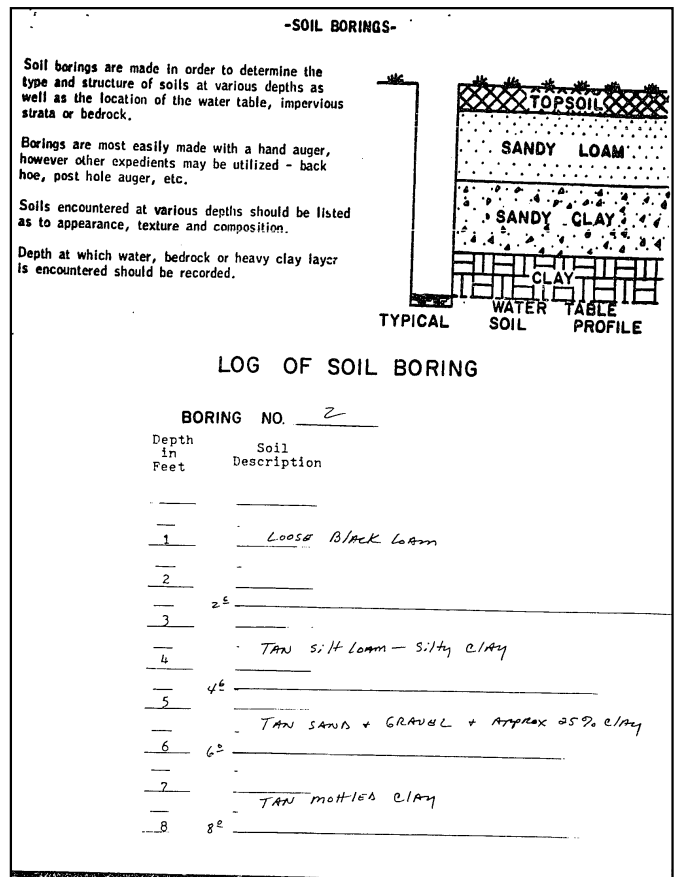 -SOIL BORINGS-
Soil borings are made in order to determine the
type and structure of soils at various depths as
well as the location of the water table, impervious
strata or bedrock.
Borings are most easily made with a hand auger,
however other expedients may be utilized - back
hoe, post hole auger, etc.
Soils encountered at various depths should be listed
as to appearance, texture and composition.
Depth at which water, bedrock or heavy clay layer
is encountered should be recorded.
TOPSOIL
SANDY LOAM
SANDY CLAY
CLAY
WATER TABLE
TYPICAL SOIL PROFILE
LOG OF SOIL BORING
BORING NO. 2
Depth
in
Feet
Soil
Description
1 Loose Black Loam
2
3
4 TAN Silt Loam - Silty Clay
4⁶
5
TAN SAND + GRAVEL + Approx 25% Clay
6 6⁰
7
TAN Mottled Clay
8 8⁰